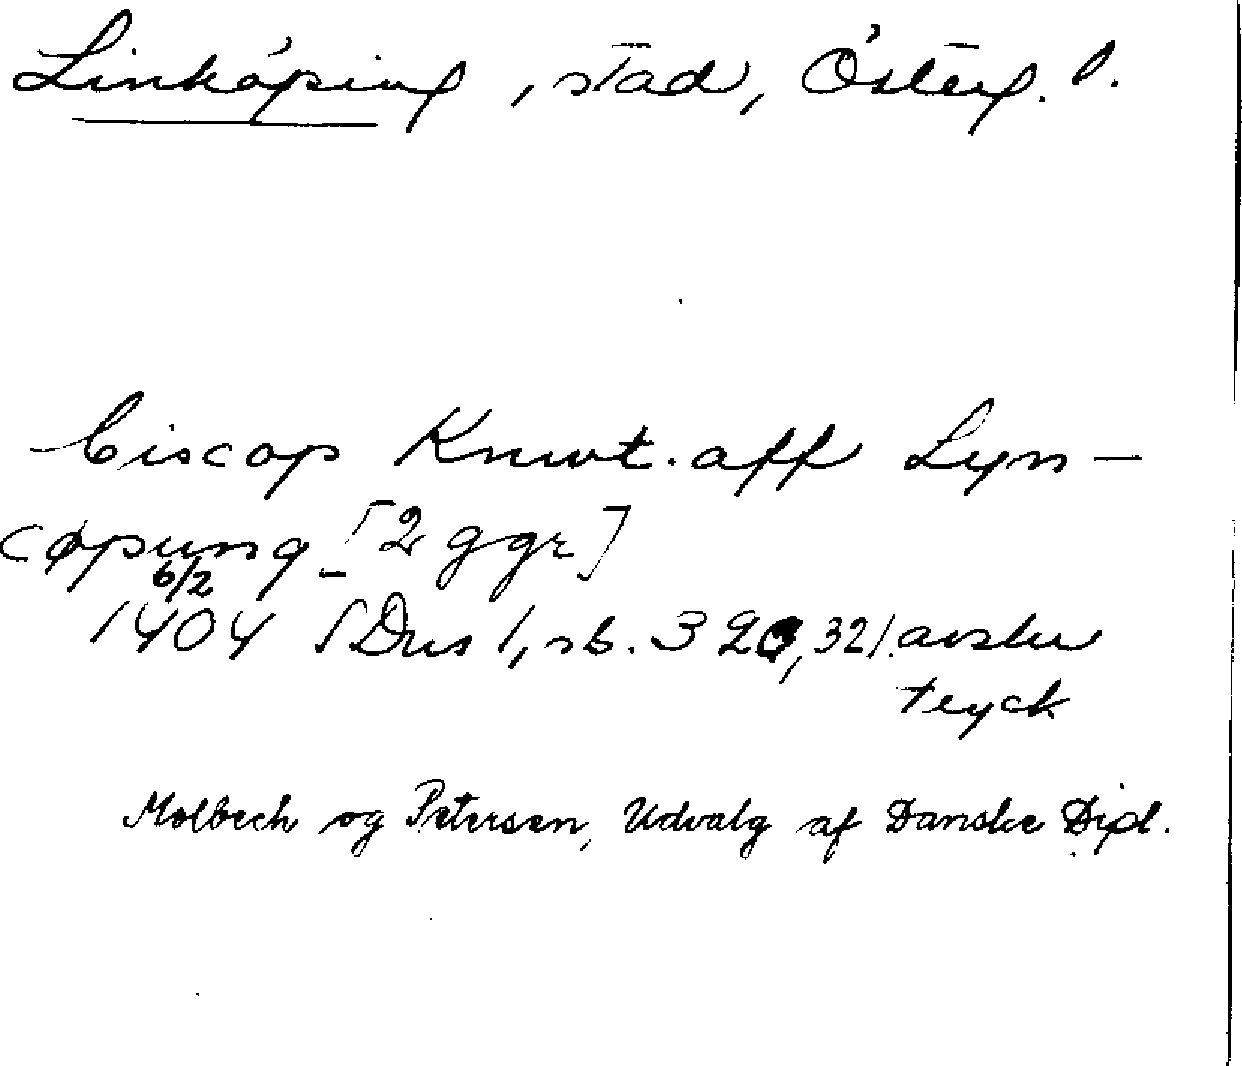 Linköping, stad, Österg. l.
biscop Knwt. aff Lyn-
cøpung [2 ggr]
6/2
1404 Dus 1, sb. 320, 321. avskr
tryck
Molbech og Petersen, Udvalg af Danske Dipl.